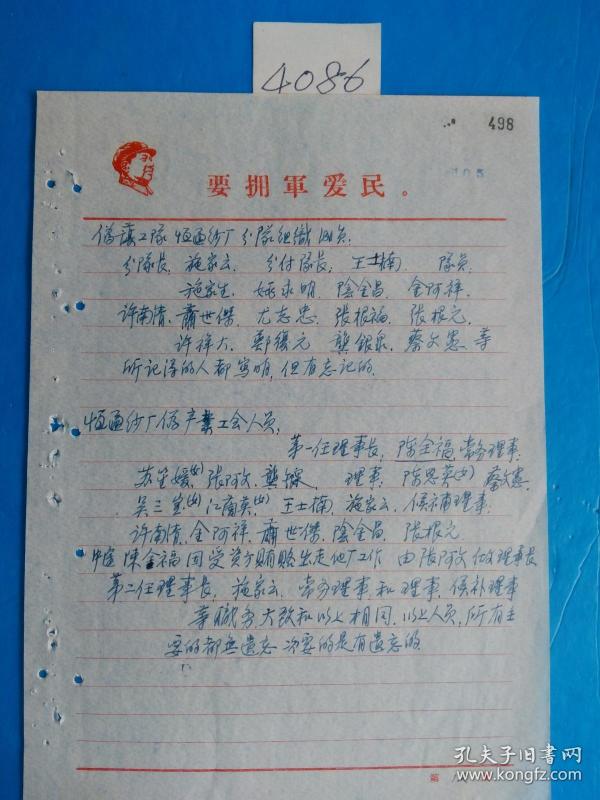 4086
498
要拥軍爱民。
伪護工隊 恒通纱厂分隊组織 成员.
分隊長, 施家云, 分付隊長, 王士楠 隊员
施家生, 姚永明, 陰全昌, 金阿祥,
许南清, 蕭世傑, 尤志忠, 張根福, 張根元,
许祥大, 鄭復元 龔銀泉, 蔡文惠 等
所记得的人都写明, 但有忘记的.
恒通纱厂伪产業工会人员,
第一任理事長, 陈全福, 常务理事,
苏笙媛(女)張阿文, 龔 理事, 陈思英(女) 蔡文惠
吴三宝(女)江菊英(女) 王士楠, 施家云, 候補理事
许南清, 金阿祥, 蕭世傑, 陰全昌, 張根元
中途 陳全福 因受资方贿赂 出走他厂工作 由張阿文 做理事長
第二任理事長, 施家云, 常务理事和理事, 候补理事
等職务大致和以上相同, 以上人员, 所有主
要的都無遗忘 次要的是有遗忘的.
第
孔夫子旧书网
www.kongfz.com